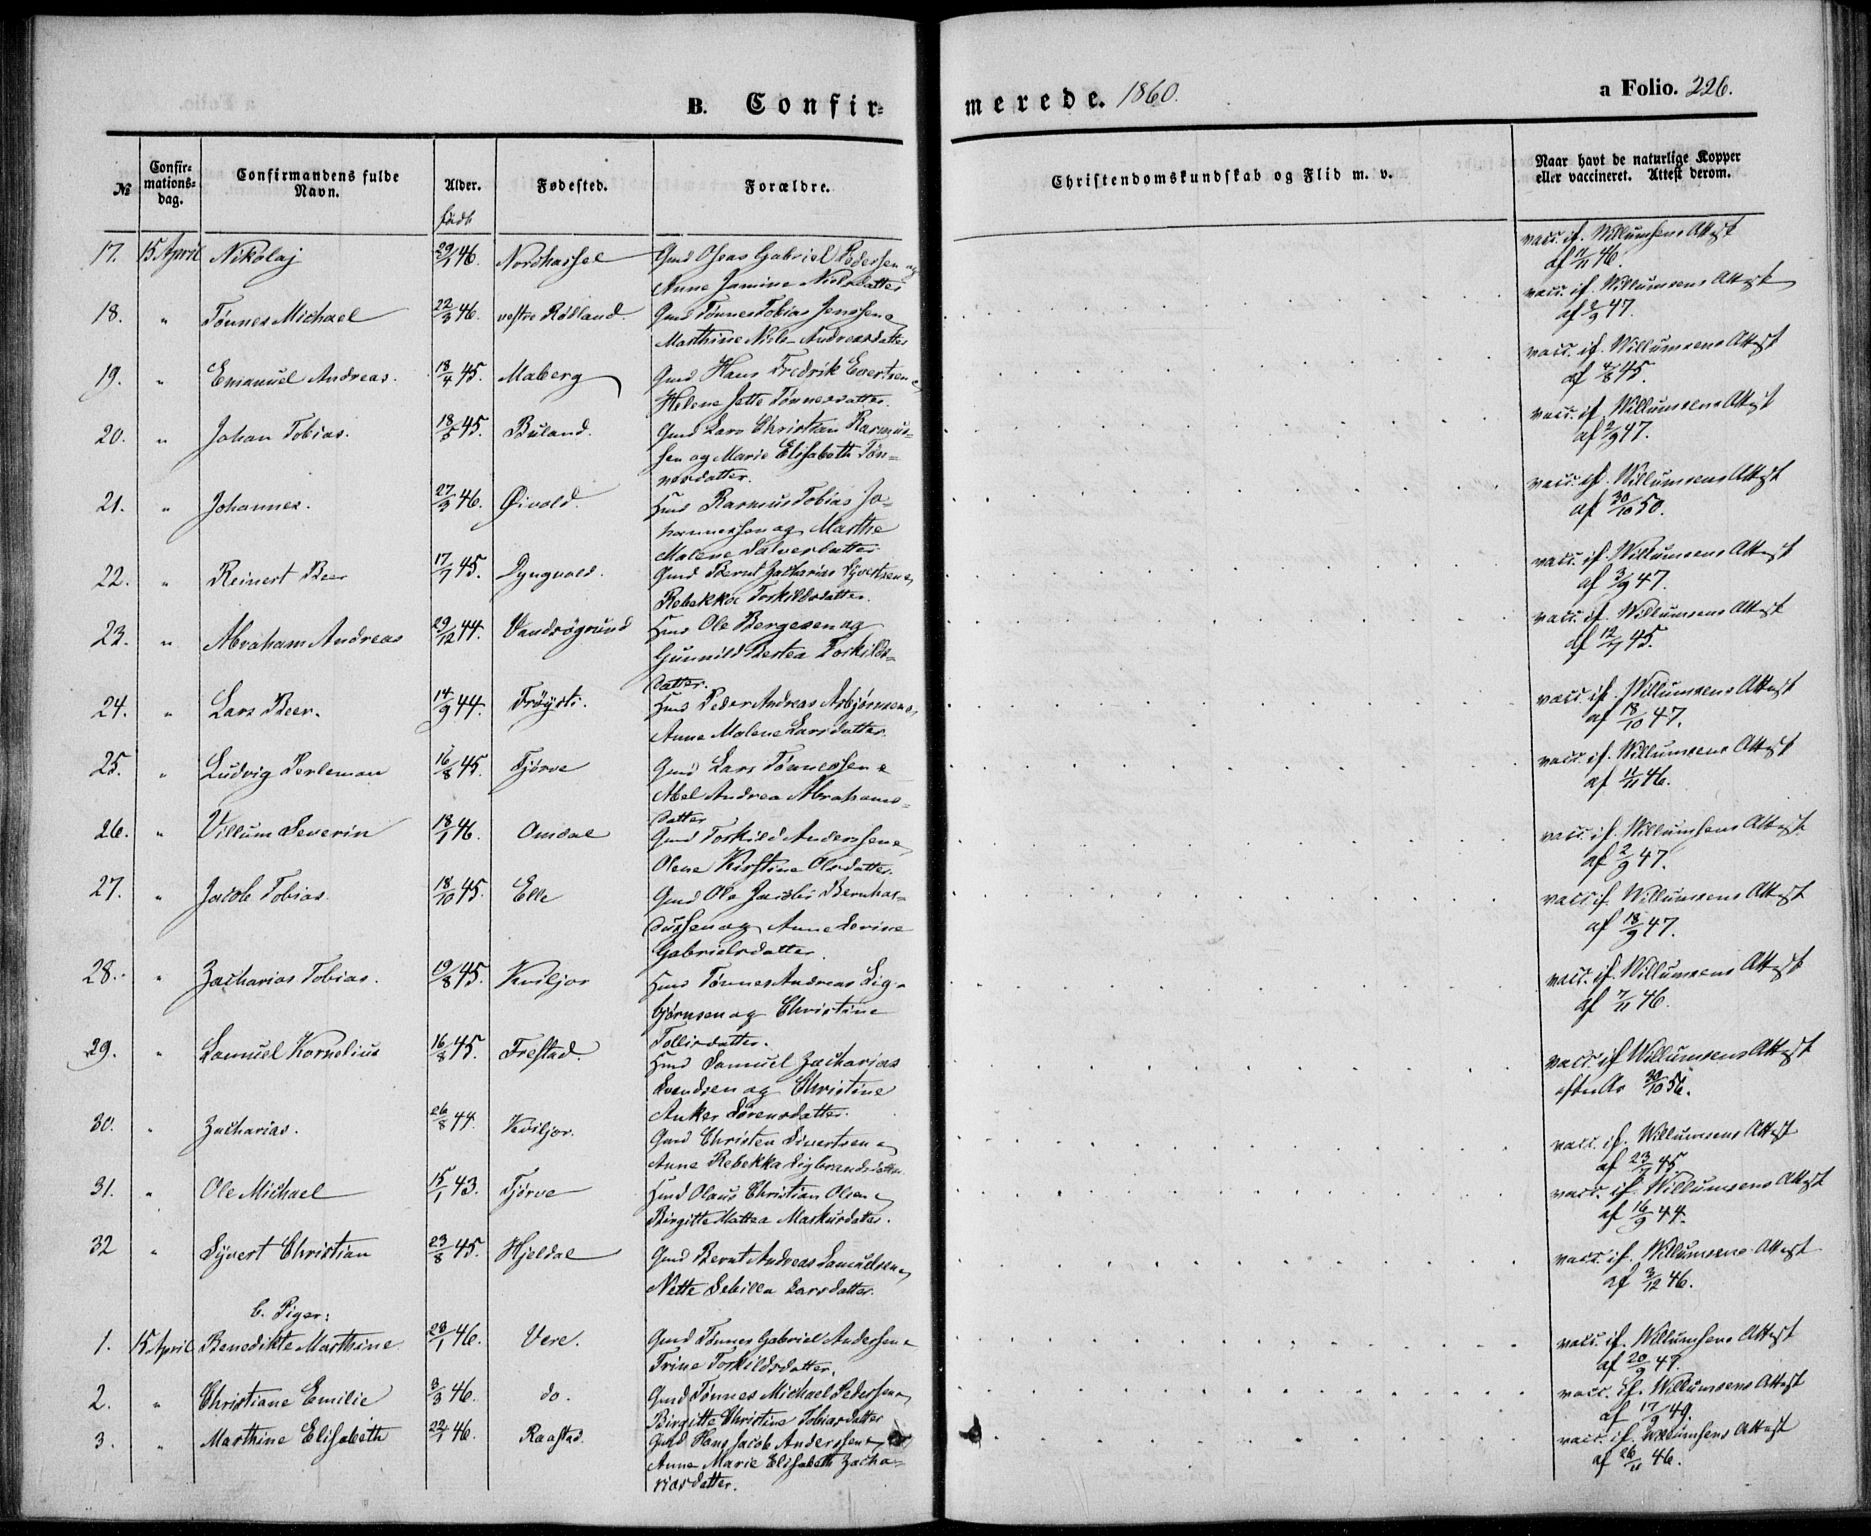 B. Confir-
merede. 1860.
a Folio. 226.
№
Confir-
mations-
dag.
Confirmandens fulde
Navn.
Alder.
født
Fødested.
Forældre.
Christendomskundskab og Flid m. v.
Naar havt de naturlige Kopper
eller vaccineret. Attest derom.
17. 15 April Nikolaj 29/1 46. Nordhassel Gmd Oseas Gabriel Pedersen og
Anne Jamine Nielsdatter
vacc. if. Willumsens Attest
af 11/11 46.
18. " Tønnes Michael 22/3 46. vestre Rødland. Gmd Tønnes Tobias Jenssen,
Marthine Niels-Andreasdatter
vacc. if. Willumsens Attest
af 2/9 47.
19. " Emanuel Andreas. 18/4 45. Maberg Gmd Hans Fredrik Evertsen,
Helene Jette Tønnesdatter.
vacc. if. Willumsens Attest
af 4/8 45.
20. " Johan Tobias. 18/5 45. Buland. Gmd Lars Christian Rasmus-
sen og Marie Elisabeth Tøn-
nesdatter.
vacc. if. Willumsens Attest
af 2/9 47.
21. " Johannes. 27/3 46. Øivold. Hmd Rasmus Tobias Jo-
hannessen og Marthe
Malene Salvesdatter
vacc. if. Willumsens Attest
af 30/10 50.
22. " Reinert Beer 17/7 45. Dyngvold. Gmd Bernt Zacharias Syvertsen,
Rebekka Torkildsdatter.
vacc. if. Willumsens Attest
af 3/9 47.
23. " Abraham Andreas 29/12 44. Vandsøgrund Hmd Ole Bergesen og
Gunnild Bertea Torkilds-
datter.
vacc. if. Willumsens Attest
af 12/7 45.
24. " Lars Beer. 14/9 44. Frøysti. Hmd Peder Andreas Asbjørnsen,
Anne Malene Larsdatter.
vacc. if. Willumsens Attest
af 18/10 47.
25. " Ludvig Perleman 16/8 45. Tjørve Gmd Lars Tønnessen
Abel Andrea Abrahams-
datter
vacc. if. Willumsens Attest
af 11/11 46.
26. " Villum Severin 18/1 46. Omdal Gmd Torkild Anderssen,
Olene Kirstine Olsdatter.
vacc. if. Willumsens Attest
af 2/9 47.
27. " Jacob Tobias. 18/10 45. Elle Gmd Ole Jacobi Bernhar-
dussen og Anne Sevine
Gabrielsdatter.
vacc if. Willumsens Attest
af 18/9 47.
28. " Zacharias Tobias. 19/8 45. Kviljor Hmd Tønnes Andreas Sig-
bjørnsen og Christine
Tollisdatter.
vacc. if. Willumsens Attest
af 7/11 46.
29. " Samuel Kornelius 16/8 45. Frestad. Hmd Samuel Zacharias
Svendsen og Christine
Anker Sørensdatter.
vacc. if Willumsens Attest
30/10 56.
30. " Zacharias. 26/8 44. Kviljor. Gmd Christen Sivertsen,
Anne Rebekka Sigbrandsdatter
vacc. if. Willumsens Attest
31. " Ole Michael 15/1 43. Tjørve Hmd Olaus Christian Olsen,
Birgitte Mattea Markusdatter.
vacc. if. Willumsens Attest
af 16/9 44.
32 " Syvert Christian 23/8 45. Hjeldal Gmd Bernt Andreas Samuelsen,
Nette Sebilla Larsdatter.
vacc. if. Willumsens Attest
af 3/12 46.
b. Piger:
1. 15 April Benedikte Marthine 28/1 46. Vere. Gmd Tønnes Gabriel Andersen
Trine Torkildsdatter.
vacc. if. Willumsens Attest
af 20/9 47.
2. " Christiane Emilie 3/3 46. do. Gmd Tønnes Michael Pedersen,
Birgitte Christine Tobiasdatter
vacc. if. Willumsens Attest
af 17/9 49.
3. " Marthine Elisabeth 22/1 46. Raastad. Gmd Hans Jacob Anderssen
Anne Marie Elisabeth Zacha-
riasdatter.
vacc. if. Willumsens Attest
af 26/11 46.